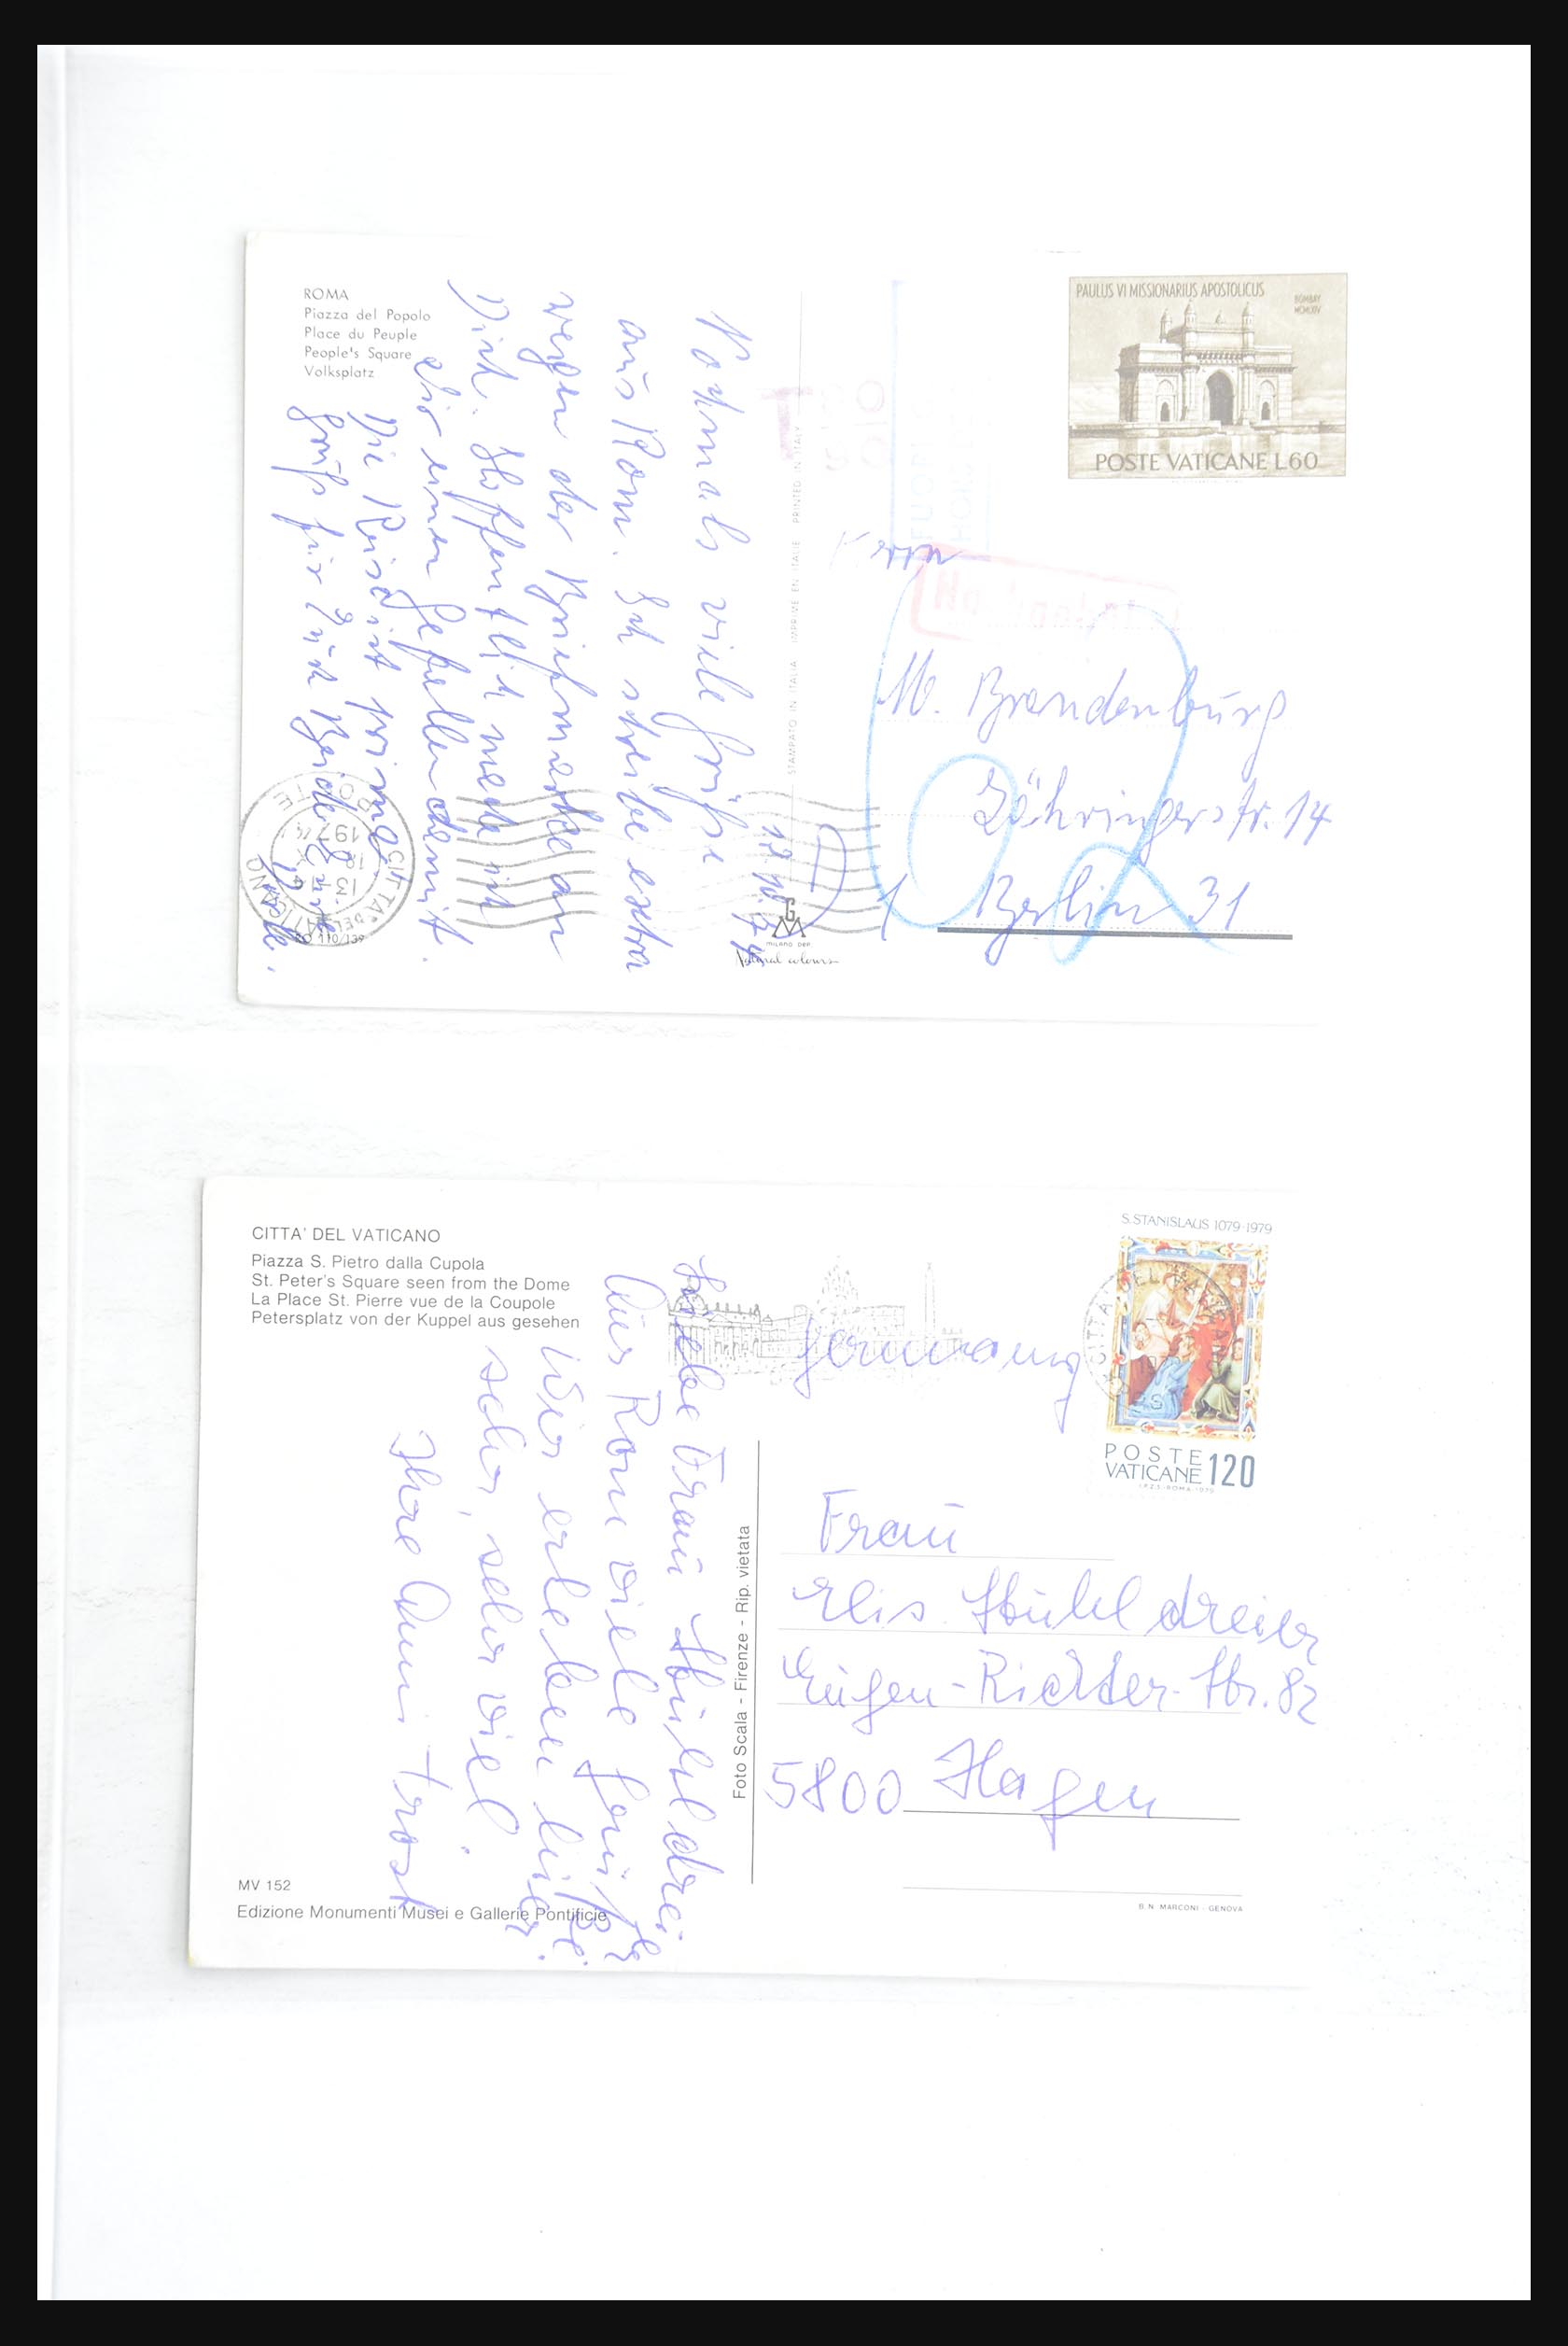 ROMA
Piazza del Popolo
Place du Peuple
People's Square
Volksplatz
PAULUS VI MISSIONARIUS APOSTOLICUS
BOMBAY
MCMLXIV
POSTE VATICANE L60
12.10.74
Nochmals viele Grüße
aus Rom. Ich schreibe extra
wegen der Briefmarke an
Dich. Hoffentlich mache ich
dir einen Gefallen damit.
Die Reise ist prima
Gruß für Euch Beide
STAMPATO IN ITALIA IMPRIME EN ITALIE PRINTED IN ITALY
CITTA DEL VATICANO
POSTE
13.
197
RO 110/139
G
M
MILANO DEP.
Natural colours
T
Herrn
M. Brandenburg
Zähringerstr. 14
1 Berlin 31
CITTA' DEL VATICANO
Piazza S. Pietro dalla Cupola
St. Peter's Square seen from the Dome
La Place St. Pierre vue de la Coupole
Petersplatz von der Kuppel aus gesehen
S. STANISLAUS 1079-1979
POSTE
VATICANE 120
I.P.Z.S.-ROMA-1979
Germany
Liebe Frau Stühldreier
Aus Rom viele Grüße
Wir erleben hier
sehr, sehr viel.
Ihre Anni Trost
Foto Scala - Firenze - Rip. vietata
Frau
Elis. Stühldreier
Eugen-Richter-Str. 82
5800 Hagen
MV 152
Edizione Monumenti Musei e Gallerie Pontificie
B. N. MARCONI - GENOVA